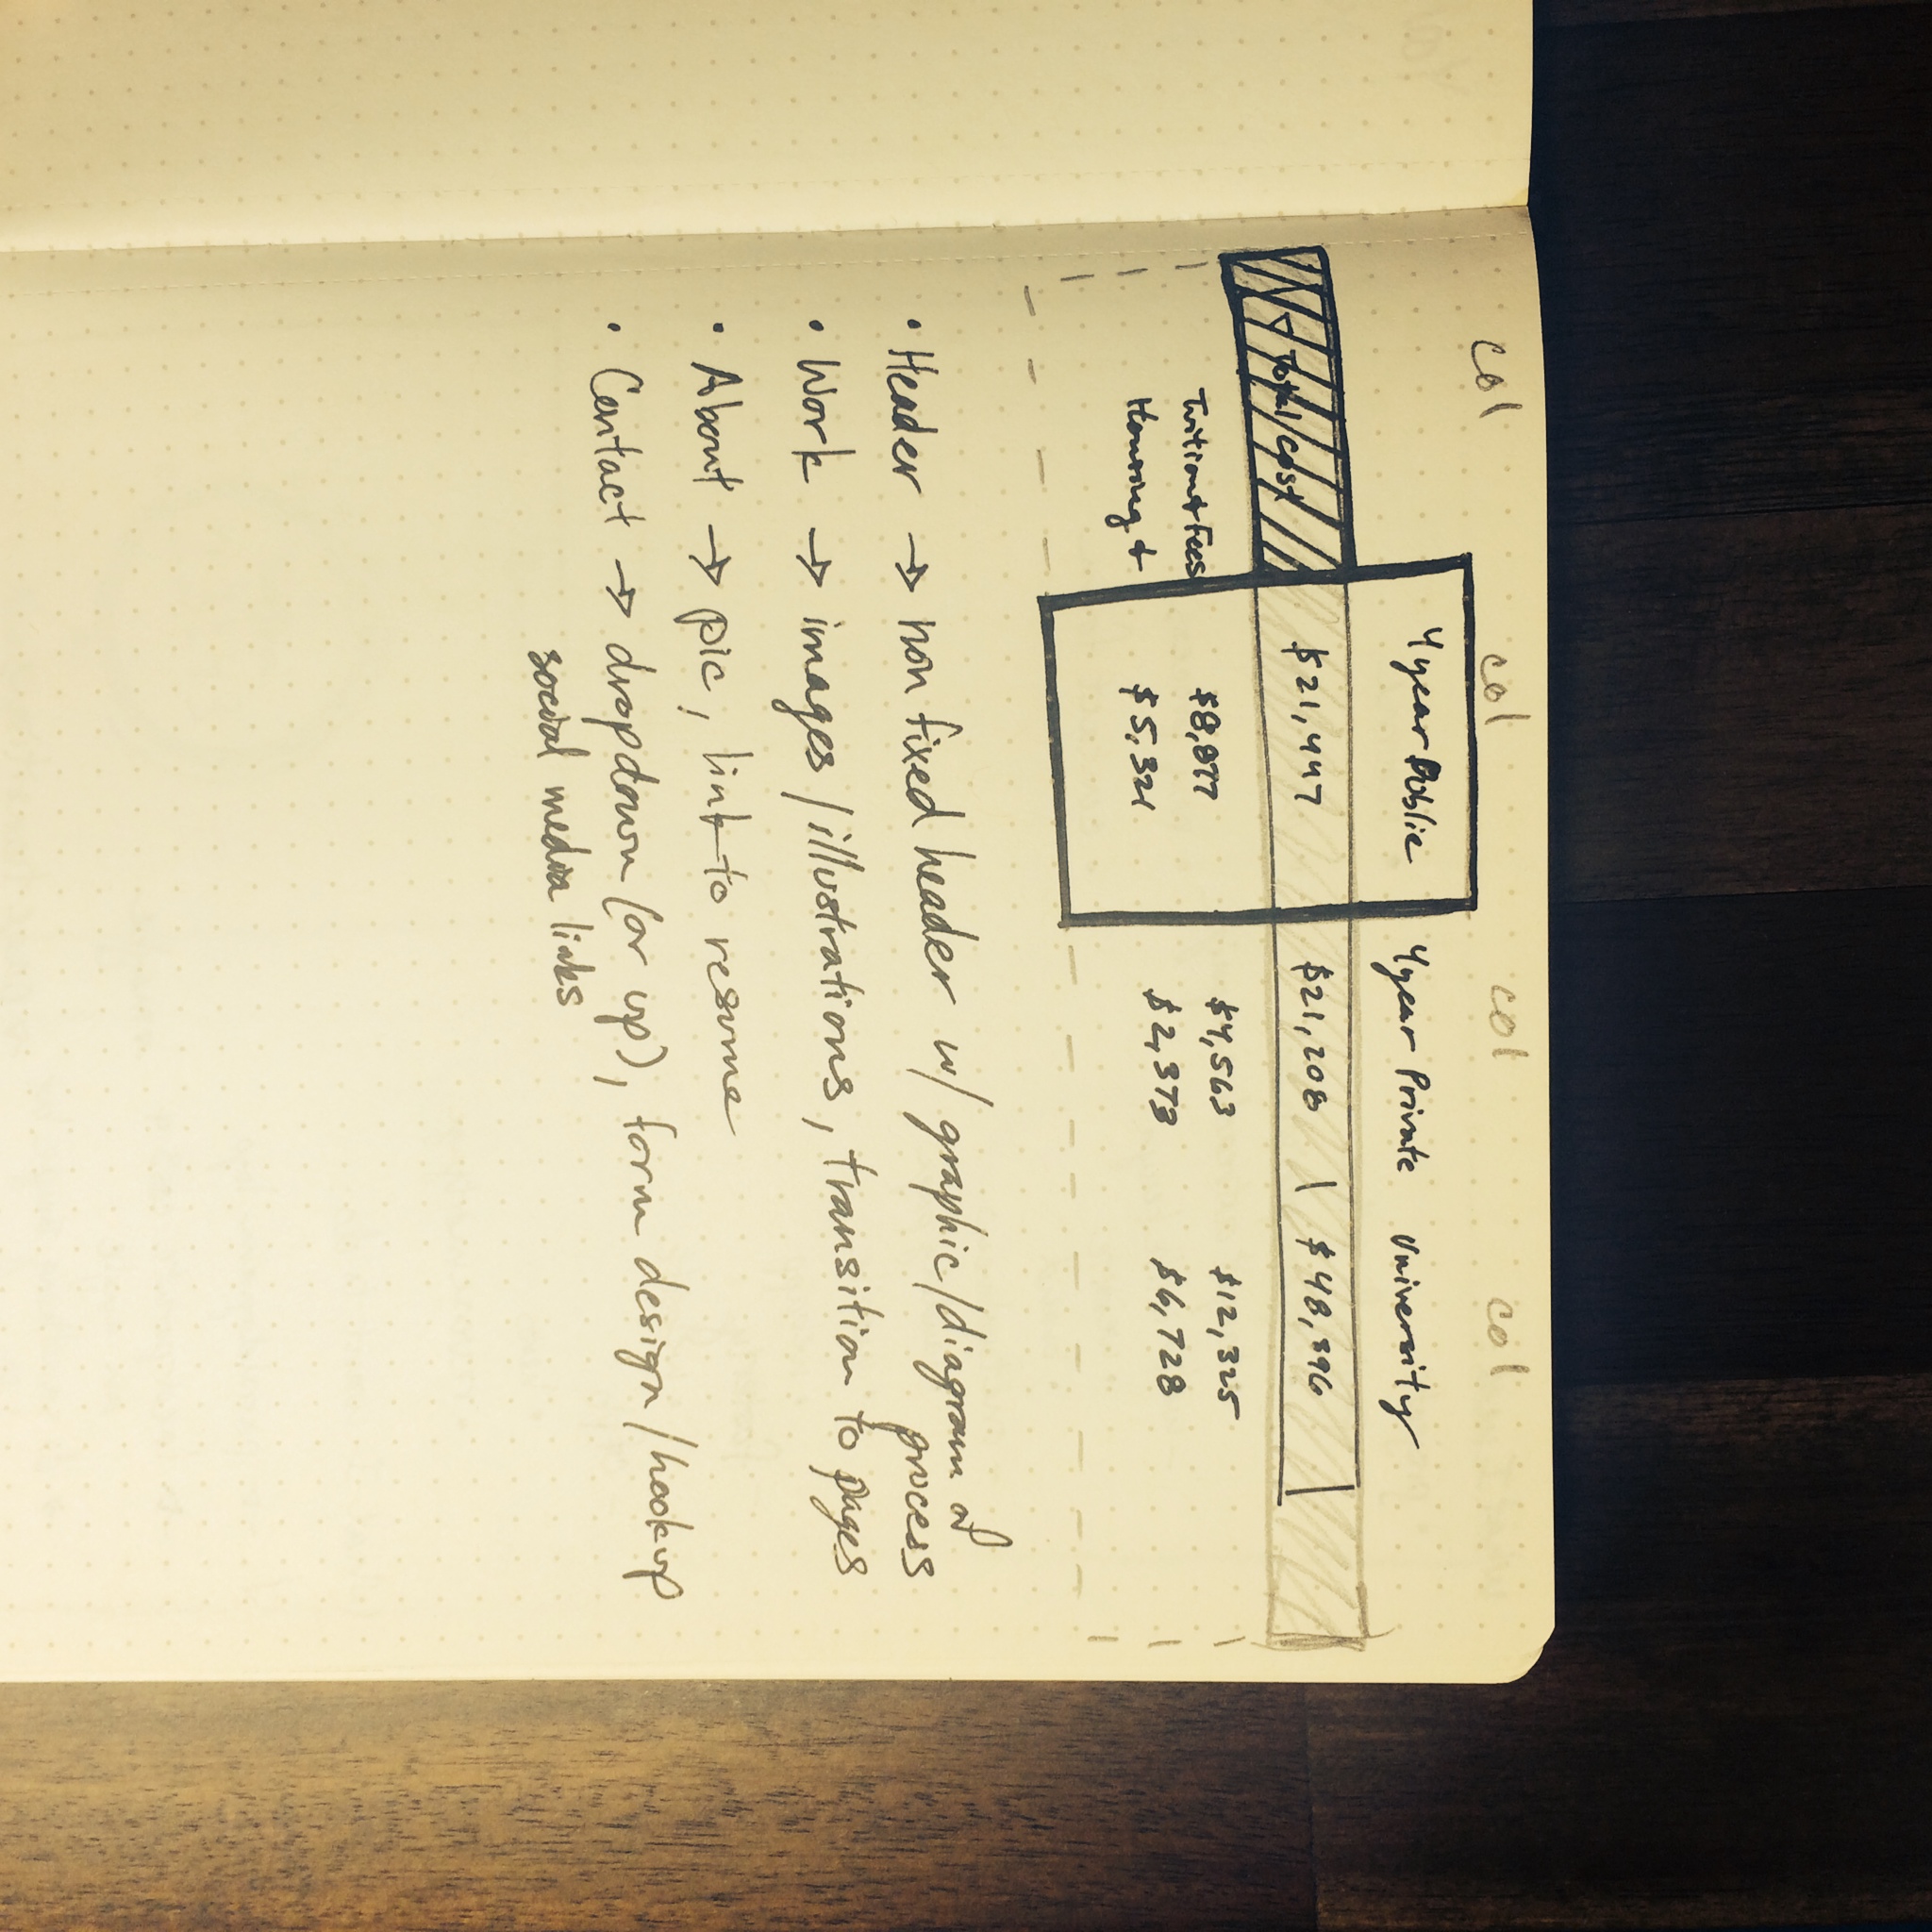 col col col col
4 year Public 4 year Private University
Total Cost $21,447 $21,208 $48,396
Tuition + Fees $8,877 $4,563 $12,325
Housing + $5,321 $2,373 $6,728
• Header → non fixed header w/ graphic/diagram of
process
• Work → images/illustrations, transition to pages
• About → pic, link to resume
• Contact → dropdown (or up), form design/hookup
social media links